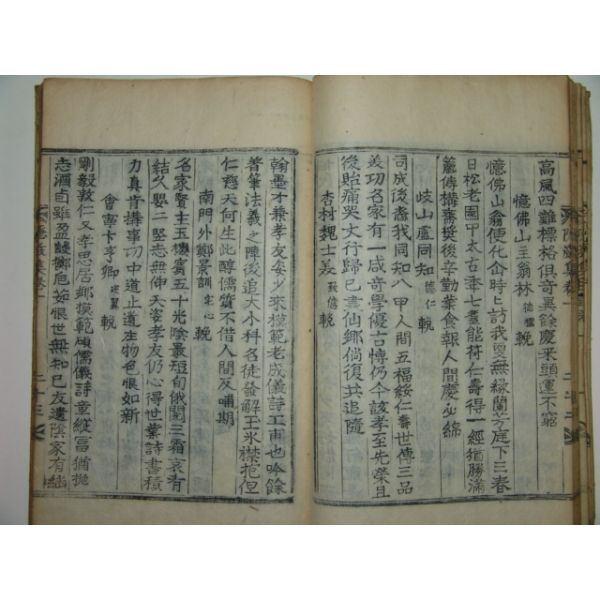 高風四難標格俱奇異餘慶來頭運不窮
憶佛山主翁林 輓
憶佛山翁便化仚時上訪我更無緣蘭芳庭下三春
日松老園甲太古秊七耋能符仁壽得一經猶勝滿
籯傳構齋奬後辛勤業食報人間慶必綿
岐山盧同知 輓
司成後裔我同知八甲人間五福綏仁壽世傳三品
義功名家有一咸奇學優古博仍今該孝至先榮且
後貽痛哭文行歸已晝仙鄉倘復共追隨
杏村魏士義 輓
翰墨才兼孝友姿少來模範老成儀詩工甫也吟餘
著筆法羲之陣後追大小科名徒發解玉氷襟抱但
仁慈天何生此醇儒質不借人間反哺期
南門外鄭景訓 輓
名家賢主五樓賓五十光陰最短旬俄聞三霜哀有
結久嬰二竪恙無伸天姿孝友仍心得世業詩書積
力眞肯搆事切中道止道生物色恨如新
會寗卞子卿 輓
剛毅敦仁又孝思居鄉模範頌儒儀詩童縱富猶拋
志酒貞雖盈 厄 恨世無知己友遺陰家有